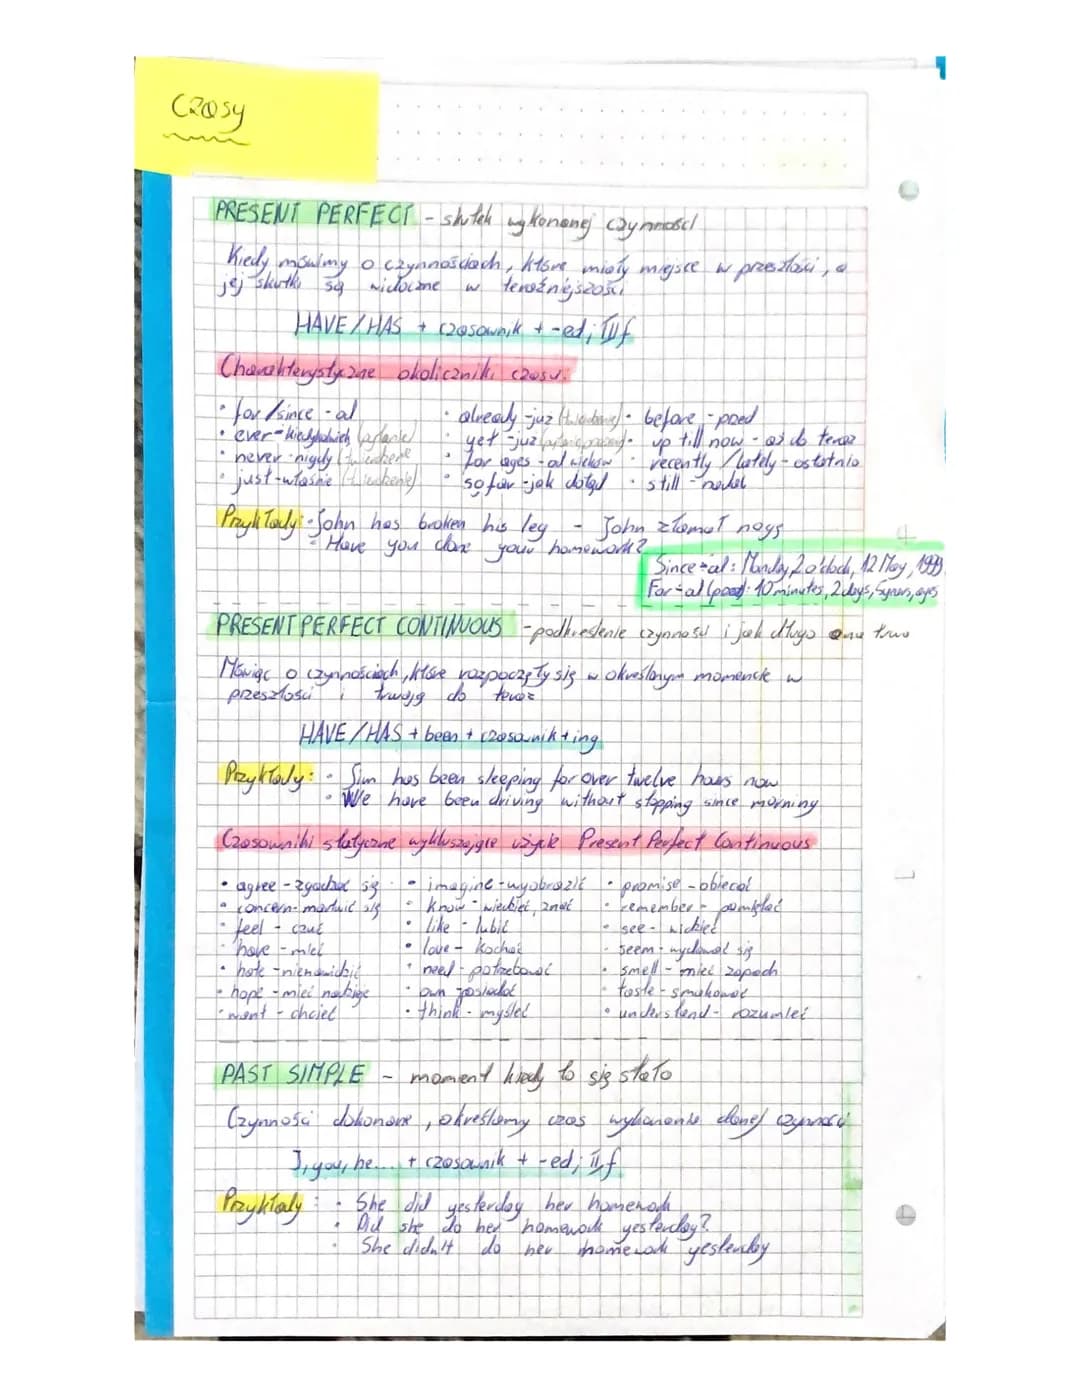 Czasy
PRESENT PERFECT - skutek wykonanej czynności
Kiedy mówimy o czynnościach, które miały miejsce w przeszłości, a
jej skutki są widoczne w teraźniejszości
HAVE/HAS + czasownik + -ed; III f
Charakterystyczne okoliczniki czasu:
• for/since - od • already - już (twierdzenie) • before - przed
• ever - kiedykolwiek (pytanie) • yet - już • up till now - aż do teraz
• never - nigdy (twierdzenie) • for ages - od wieków • recently/lately - ostatnio
• just - właśnie (twierdzenie) • so far - jak dotąd • still - nadal
Przykłady: • John has broken his leg - John złamał nogę
• Have you done your homework?
Since - od: Monday, 2 o'clock, 12 May, 1999
For - od (przed): 10 minutes, 2 days, 5 years, ages
PRESENT PERFECT CONTINUOUS - podkreślenie czynności i jak długo ona trwa
Mówiąc o czynnościach, które rozpoczęły się w określonym momencie w
przeszłości i trwają do teraz
HAVE/HAS + been + czasownik + ing
Przykłady: • Sim has been sleeping for over twelve hours now
• We have been driving without stopping since morning
Czasowniki statyczne wykluczające użycie Present Perfect Continuous
• agree - zgadzać się • imagine - wyobrazić • promise - obiecać
• concern - martwić się • know - wiedzieć, znać • remember - pamiętać
• feel - czuć • like - lubić • see - widzieć
• have - mieć • love - kochać • seem - wydawać się
• hate - nienawidzić • need - potrzebować • smell - mieć zapach
• hope - mieć nadzieję • own - posiadać • taste - smakować
• want - chcieć • think - myśleć • understand - rozumieć
PAST SIMPLE - moment kiedy to się stało
Czynności dokonane, określamy czas wykonania danej czynności
I, you, he... + czasownik + -ed; II f
Przykłady: • She did yesterday her homework
• Did she do her homework yesterday?
• She didn't do her homework yesterday